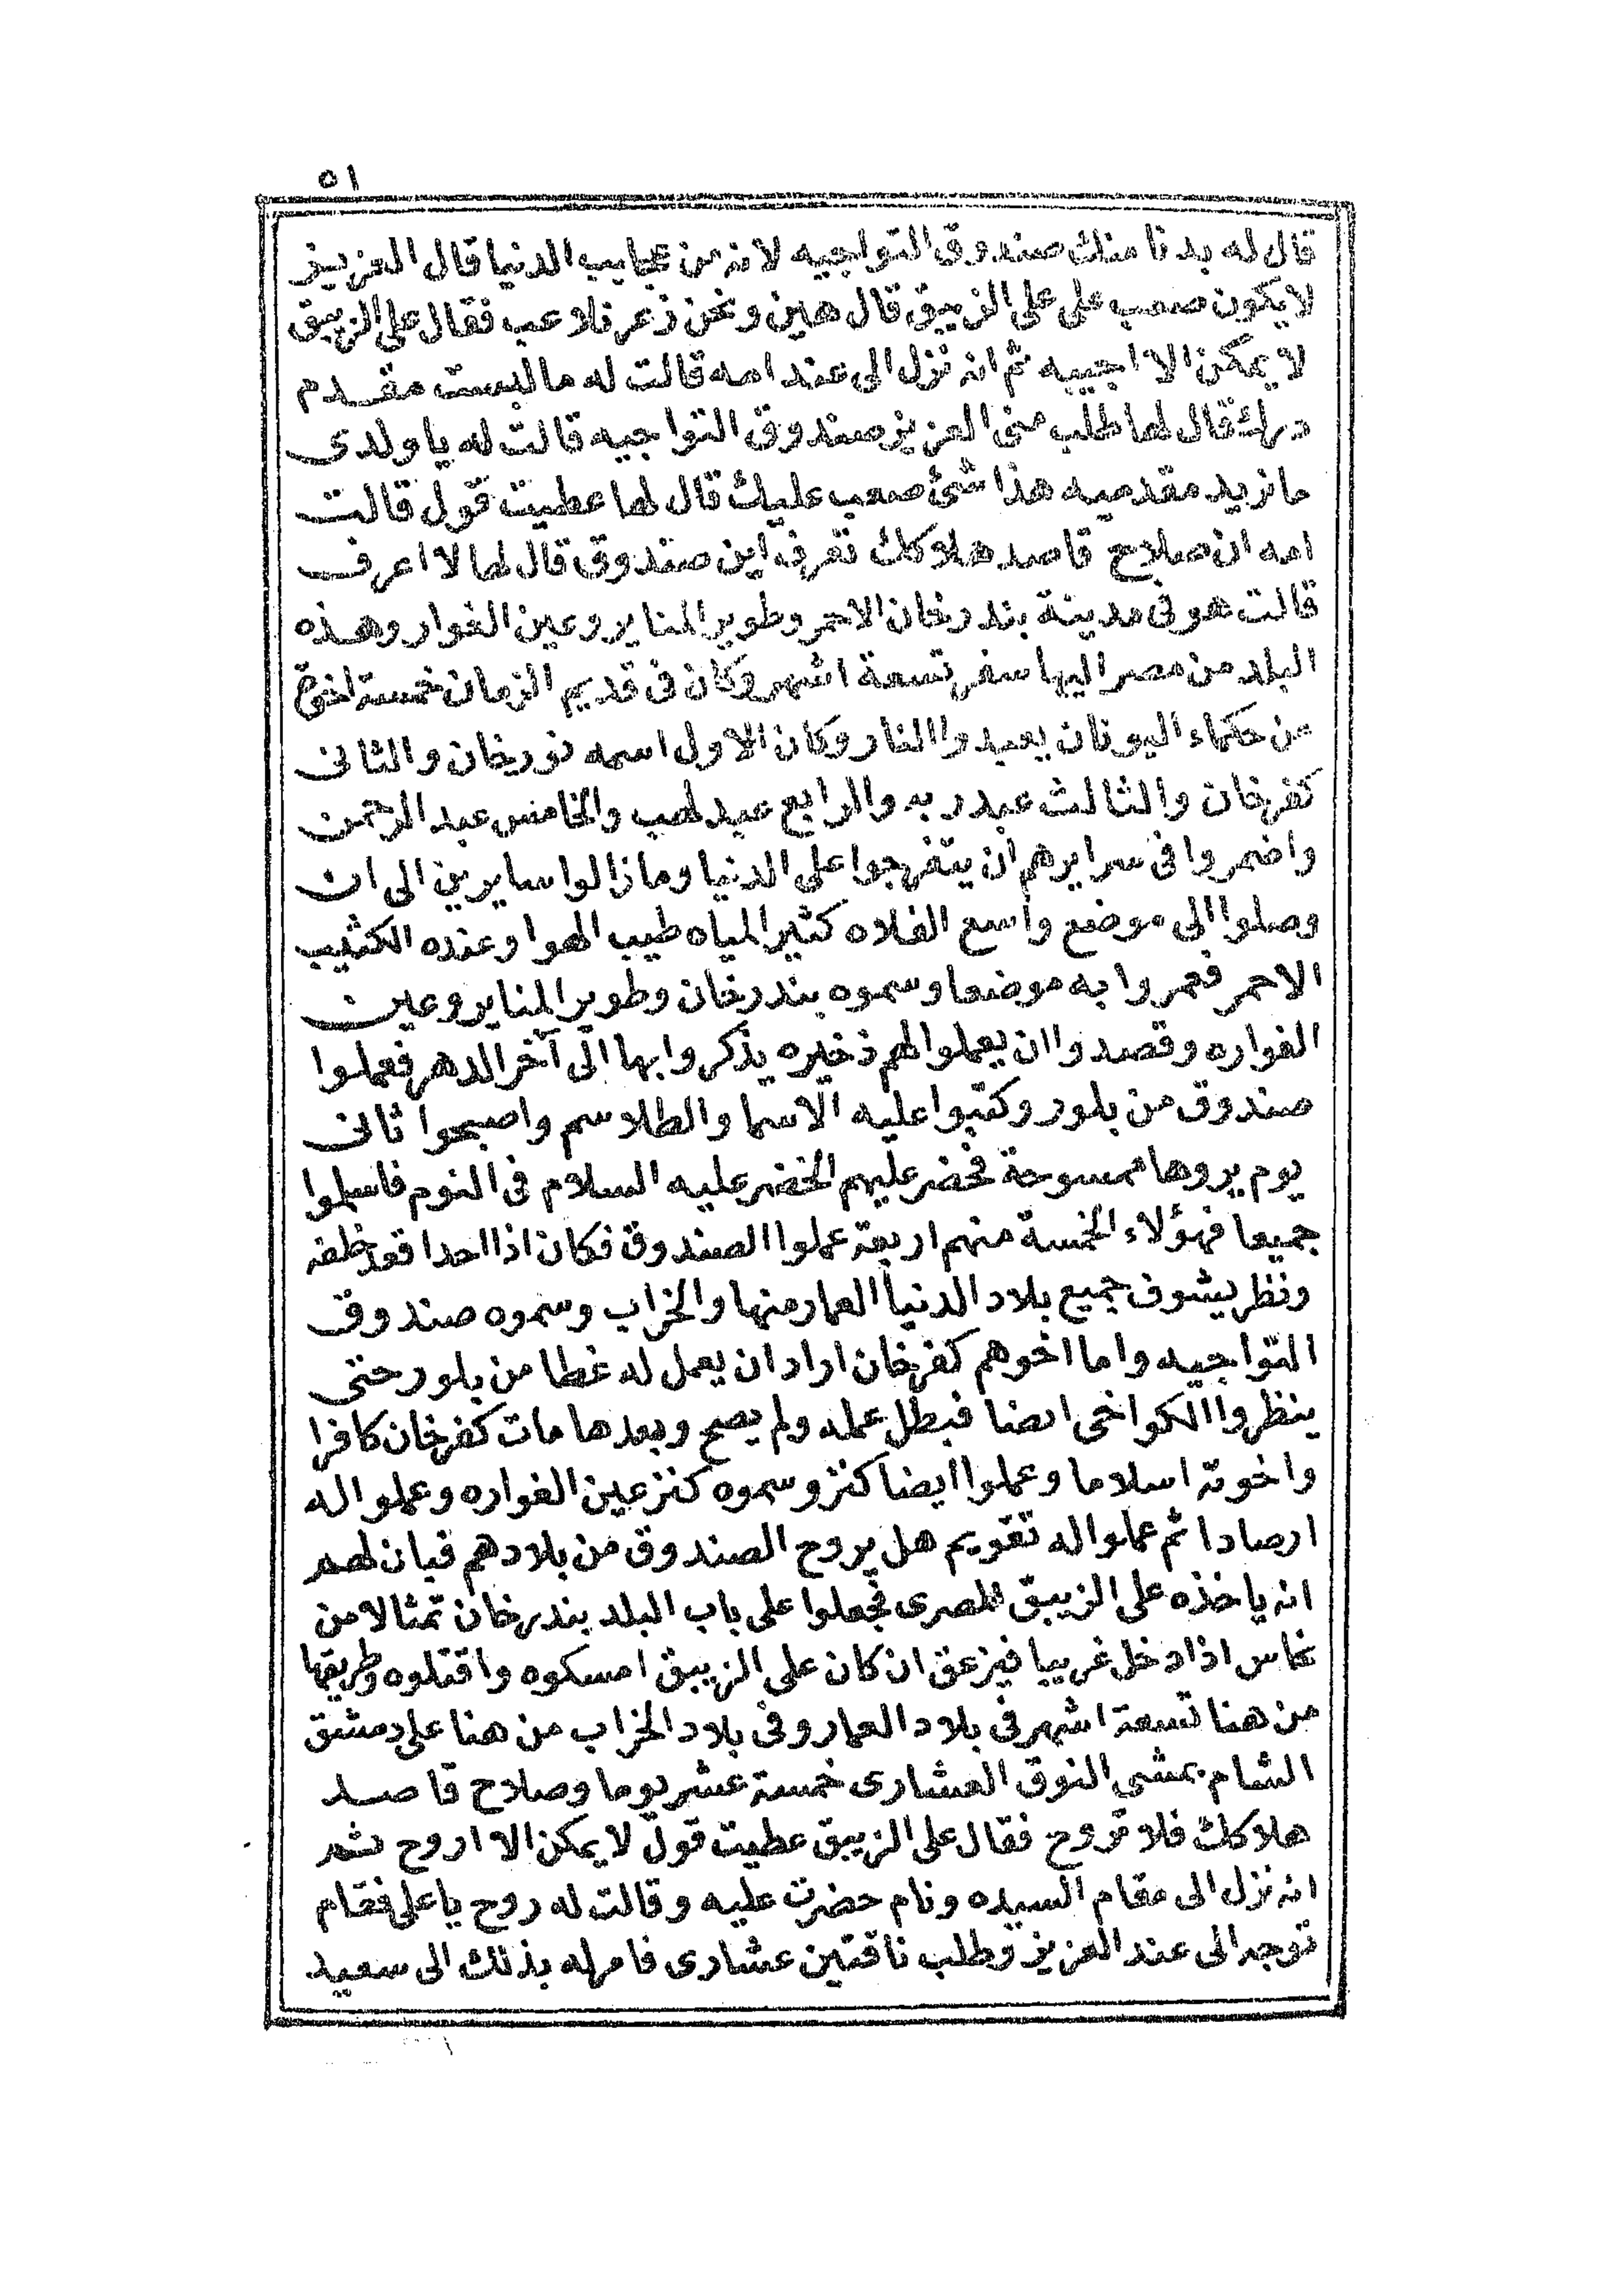 ٥١
قال له بدنا منك صندوق التواجيه لانه من عجايب الدنيا قال العزيز
لا يكون صعب على على الزيبق قال هين ونحن زعر نلاعب فقال على الزيبق
لا يمكن الا اجيبه ثم انه نزل الى عند امه قالت له ما لبست مقدم
درك قال لها طلب منى العزيز صندوق التواجيه قالت له يا ولدى
ما نريد مقدميه هذا شئ صعب عليك قال لها عطيت قول قالت
امه ان صلاح قاصد هلاكك تعرف اين صندوق قال لها لا اعرف
قالت هو فى مدينة بندرخان الاحمر وطوير المناير وعين الفوار وهذه
البلد من مصر اليها سفر تسعة اشهر وكان فى قديم الزمان خمسة اخوة
من حكماء اليونان يعبدوا النار وكان الاول اسمه نوريخان والثانى
كفرخان والثالث عبد ربه والرابع عبد لهب والخامس عبد الرحمن
واضمروا فى سرايرهم ان يتفرجوا على الدنيا وما زالوا سايرين الى ان
وصلوا الى موضع واسع الفلاه كثير المياه طيب الهوا وعنده الكثيب
الاحمر فعمروا به موضعا وسموه بندرخان وطوير المناير وعين
الفواره وقصدوا ان يعملوا لهم ذخيره يذكروا بها الى آخر الدهر فعملوا
صندوق من بلور وكتبوا عليه الاسما والطلاسم واصبحوا ثانى
يوم يروها ممسوحة فحضر عليهم الخضر عليه السلام فى النوم فاسلموا
جميعا فهؤلاء الخمسة منهم اربعة عملوا الصندوق فكان اذا احدا قعد خلفه
ونظر يشوف جميع بلاد الدنيا العمار منها والخراب وسموه صندوق
التواجيه واما اخوهم كفرخان اراد ان يعمل له غطا من بلور حتى
ينظروا الكواخى ايضا فبطل عمله ولم يصح وبعدها مات كفرخان كافرا
واخوته اسلاما وعملوا أيضا كنز وسموه كنز عين الفواره وعملوا له
ارصادا ثم عملوا له تقويم هل يروح الصندوق من بلادهم فبان لهم
انه ياخذه على الزيبق المصرى فجعلوا على باب البلد بندرخان تمثالا من
نحاس اذا دخل غريبا فيزعق ان كان على الزيبق امسكوه واقتلوه وطريقها
من هنا تسعة اشهر فى بلاد العمار وفى بلاد الخراب من هنا على دمشق
الشام بمشى النوق العشارى خمسة عشر يوما وصلاح قاصد
هلاكك فلا تروح فقال على الزيبق عطيت قول لا يمكن الا اروح ثم
انه نزل الى مقام السيده ونام حضرت عليه وقالت له روح يا على فقام
توجه الى عند العزيز وطلب ناقتين عشارى فامر له بذلك الى سعيد